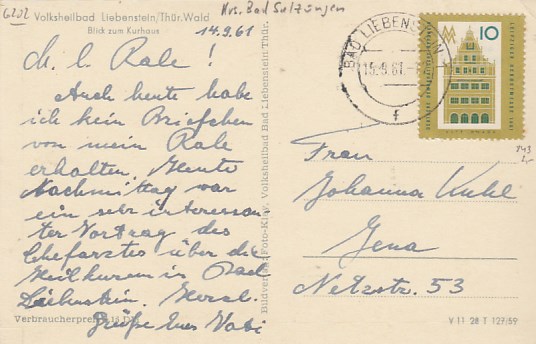 6202
Krs. Bad Salzungen
Volksheilbad Liebenstein/Thür.Wald
Blick zum Kurhaus
14.9.61
M. l. Rale!
Auch heute habe
ich kein Briefchen
von mein Rale
erhalten. Heute
Nachmittag war
ein sehr interessan-
ter Vortrag des
Chefarztes über die
Heilkuren in Bad
Liebenstein. Herzl.
Grüße Euer Vati
Verbraucherpreis 15 DPf
Volksheilbad Bad Liebenstein Thür.
BAD LIEBENSTEIN
15.9.61
f
10
Frau
Johanna Kuhl
Jena
Netzstr. 53
V 11 28 T 127/59